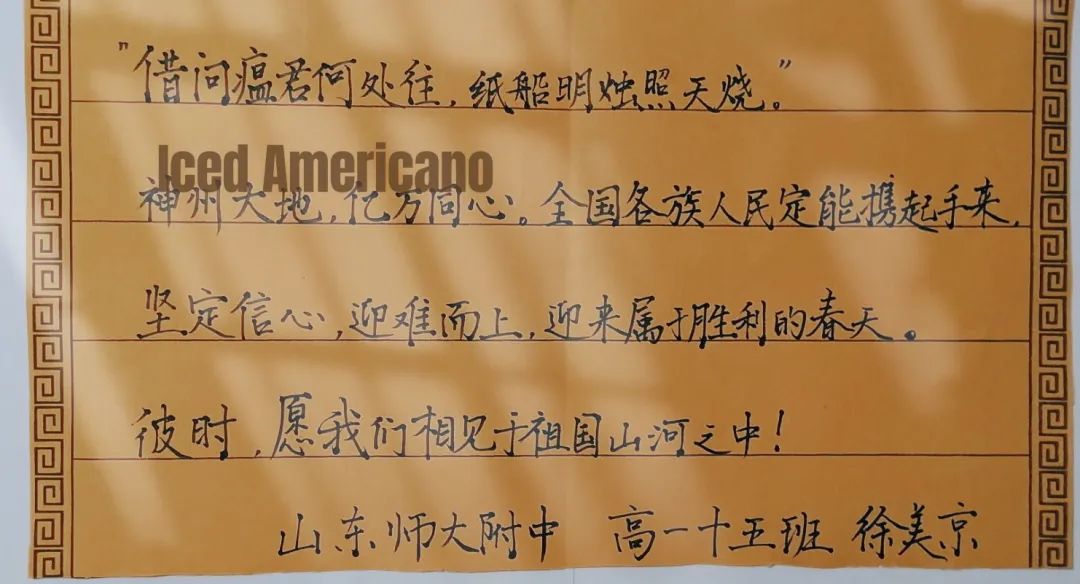 "借问瘟君何处往，纸船明烛照天烧。"
Iced Americano
神州大地，亿万同心。全国各族人民定能携起手来，
坚定信心，迎难而上，迎来属于胜利的春天。
彼时，愿我们相见于祖国山河之中！
山东师大附中 高一十五班 徐美京